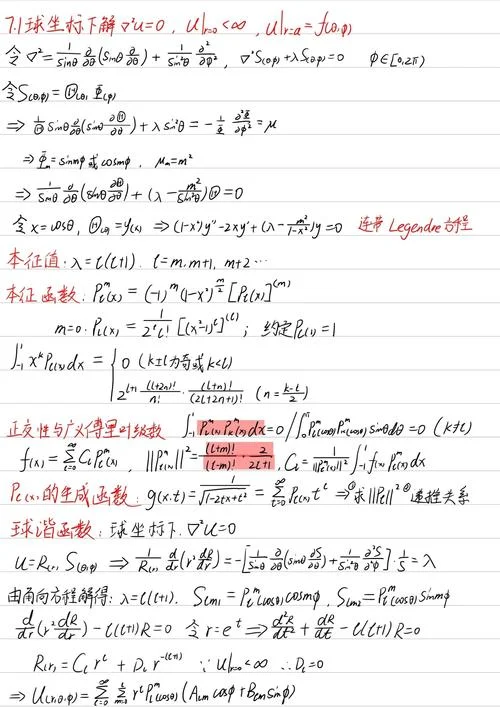 7.1 球坐标下解 ∇²u=0, u|r=0<∞, u|r=a=f(θ,φ)
令 ∇²= 1/sinθ ∂/∂θ(sinθ ∂/∂θ) + 1/sin²θ ∂²/∂φ², ∇²S(θ,φ)+λS(θ,φ)=0 φ∈[0,2π)
令S(θ,φ)=Θ(θ)Φ(φ)
⇒ 1/Θ sinθ ∂/∂θ(sinθ ∂Θ/∂θ) + λsin²θ = -1/Φ ∂²Φ/∂φ² = μ
⇒ Φm=sinmφ 或 cosmφ, μm=m²
⇒ 1/sinθ ∂/∂θ(sinθ ∂Θ/∂θ) + (λ - m²/sin²θ)Θ=0
令 x=cosθ, Θ(θ)=y(x) ⇒ (1-x²)y''-2xy'+(λ - m²/1-x²)y=0 连带 Legendre 方程
本征值: λ=l(l+1). l=m, m+1, m+2⋯
本征函数: Pₗᵐ(x) = (-1)ᵐ(1-x²)^(m/2)[Pₗ(x)]^(m)
m=0: Pₗ(x) = 1/2ˡl! [(x²-1)ˡ]^(l); 约定Pₗ(1)=1
∫₋₁¹ xᵏPₗ(x)dx = { 0 (k±l为奇或k<l)
2^(l+1) (l+2n)!/n! · (l+n)!/(2l+2n+1)! (n=(k-l)/2)
正交性与广义傅里叶级数 ∫₋₁¹ Pₗᵐ(x)Pₖᵐ(x)dx=0 / ∫₀^π Pₗᵐ(cosθ)Pₖᵐ(cosθ)sinθdθ=0 (k≠l)
f(x) = Σ(l=0→∞) CₗPₗᵐ(x), ‖Pₗᵐ(x)‖² = (l+m)!/(l-m)! · 2/2l+1, Cₗ = 1/‖Pₗᵐ(x)‖² ∫₋₁¹ f(x)Pₗᵐ(x)dx
Pₗ(x)的生成函数: g(x,t) = 1/√(1-2tx+t²) = Σ(l=0→∞) Pₗ(x)tˡ ⇒ ①求‖Pₗ‖² ②递推关系
球谐函数: 球坐标下. ∇²u=0
u=R(r)S(θ,φ) ⇒ 1/R(r) d/dr(r² dR/dr) = -[1/sinθ ∂/∂θ(sinθ ∂S/∂θ) + 1/sin²θ ∂²S/∂φ²]·1/S = λ
由角向方程解得: λ=l(l+1). Slm1 = Pₗᵐ(cosθ)cosmφ, Slm2 = Pₗᵐ(cosθ)sinmφ
d/dr(r² dR/dr) - l(l+1)R=0 令 r=eᵗ ⇒ d²R/dt² + dR/dt - l(l+1)R=0
R(r) = Cₗrˡ + Dₗr^-(l+1) ∵ u|r=0<∞ ∴ Dₗ=0
⇒ u(r,θ,φ) = Σ(l=0→∞) Σ(m=0→l) rˡPₗᵐ(cosθ)(Alm cosφ + Blm sinφ)